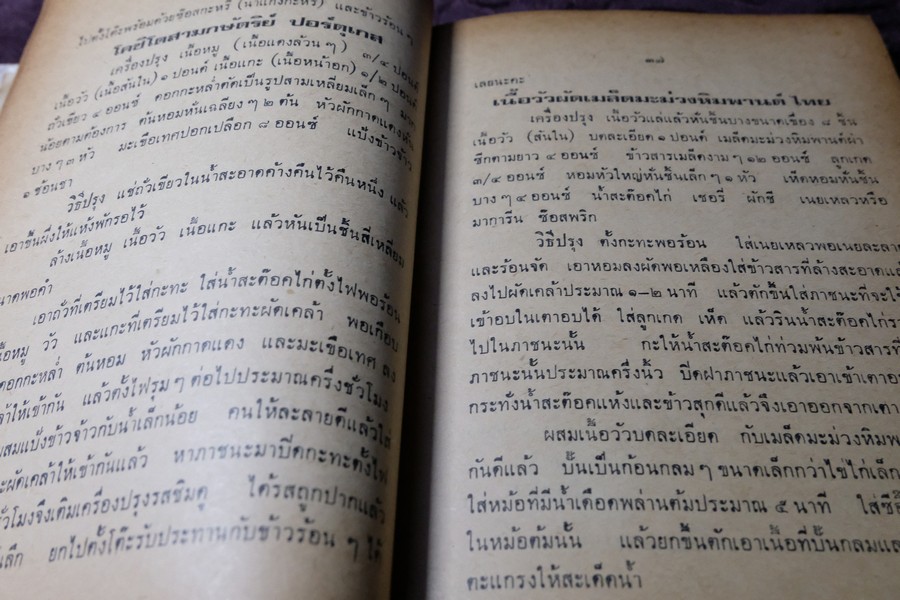 ไปตั้งโต๊ะพร้อมด้วยซ๊อสกะหรี่ (น้ำแกงกะหรี่) และข้าวร้อน ๆ
โดยิโดสามกษัตริย์ ปอร์ตุเกส
เครื่องปรุง เนื้อหมู (เนื้อแดงล้วน ๆ) ๓/๔ ปอนด์
เนื้อวัว (เนื้อสันใน) ๑ ปอนด์ เนื้อแกะ (เนื้อหน้าอก) ๑/๒ ปอนด์
ถั่วเขียว ๔ ออนซ์ ดอกกะหล่ำตัดเป็นรูปสามเหลี่ยมเล็ก ๆ มาก
น้อยตามต้องการ ต้นหอมหั่นเฉลียง ๆ ๒ ต้น หัวผักกาดแดงหั่น
บาง ๆ ๓ หัว มะเขือเทศปอกเปลือก ๘ ออนซ์ แป้งข้าวจ้าว
๑ ช้อนชา
วิธีปรุง แช่ถั่วเขียวในน้ำสะอาดค้างคืนไว้คืนหนึ่ง แล้ว
เอาขึ้นผึ่งให้แห้งพักรอไว้
ล้างเนื้อหมู เนื้อวัว เนื้อแกะ แล้วหั่นเป็นชิ้นสี่เหลี่ยม
นาดพอคำ
เอาถั่วที่เตรียมไว้ใส่กะทะ ใส่น้ำสะต๊อคไก่ตั้งไฟพอร้อน
นื้อหมู วัว และแกะที่เตรียมไว้ใส่กะทะผัดเคล้า พอเกือบ
ดอกกะหล่ำ ต้นหอม หัวผักกาดแดง และมะเขือเทศ ลง
ล้าให้เข้ากัน แล้วตั้งไฟรุม ๆ ต่อไปประมาณครึ่งชั่วโมง
ผสมแป้งข้าวจ้าวกับน้ำเล็กน้อย คนให้ละลายดีแล้วใส่
ะผัดเคล้าให้เข้ากันแล้ว หาภาชนะมาปิดกะทะตั้งไฟ
ชั่วโมงจึงเติมเครื่องปรุงรสชิมดู ได้รสถูกปากแล้ว
ลึก ยกไปตั้งโต๊ะรับประทานกับข้าวร้อน ๆ ได้
๓๗
เลยนะคะ
เนื้อวัวผัดเมล็ดมะม่วงหิมพานต์ ไทย
เครื่องปรุง เนื้อวัวแล่แล้วหั่นชิ้นบางขนาดเขื่อง ๘ ชิ้น
เนื้อวัว (สันใน) บดละเอียด ๑ ปอนด์ เมล็ดมะม่วงหิมพานต์ผ่า
ซีกตามยาว ๔ ออนซ์ ข้าวสารเมล็ดงาม ๆ ๑๒ ออนซ์ ลูกเกต
๓/๔ ออนซ์ หอมหัวใหญ่หั่นชิ้นเล็ก ๆ ๑ หัว เห็ดหอมหั่นชิ้น
บาง ๆ ๔ ออนซ์ น้ำสะต๊อคไก่ เชอรี่ ผักชี เนยเหลวหรือ
มาการีน ซ๊อสพริก
วิธีปรุง ตั้งกะทะพอร้อน ใส่เนยเหลวพอเนยละลาย
และร้อนจัด เอาหอมลงผัดพอเหลืองใส่ข้าวสารที่ล้างสะอาดแล้
ลงไปผัดเคล้าประมาณ ๑–๒ นาที แล้วตักขึ้นใส่ภาชนะที่จะใช้
เข้าอบในเตาอบได้ ใส่ลูกเกต เห็ด แล้วรินน้ำสะต๊อคไก่รา
ไปในภาชนะนั้น กะให้น้ำสะต๊อคไก่ท่วมพ้นข้าวสารที่
ภาชนะนั้นประมาณครึ่งนิ้ว ปิดฝาภาชนะแล้วเอาเข้าเตาอบ
กระทั่งน้ำสะต๊อคแห้งและข้าวสุกดีแล้วจึงเอาออกจากเตา
ผสมเนื้อวัวบดละเอียด กับเมล็ดมะม่วงหิมพ
กันดีแล้ว ปั้นเป็นก้อนกลม ๆ ขนาดเล็กกว่าไข่ไก่เล็ก
ใส่หม้อที่มีน้ำเดือดพล่านต้มประมาณ ๕ นาที ใส่ซ๊
ในหม้อต้มนั้น แล้วยกขึ้นตักเอาเนื้อที่ปั้นกลมแล
ตะแกรงให้สะเด็ดน้ำ